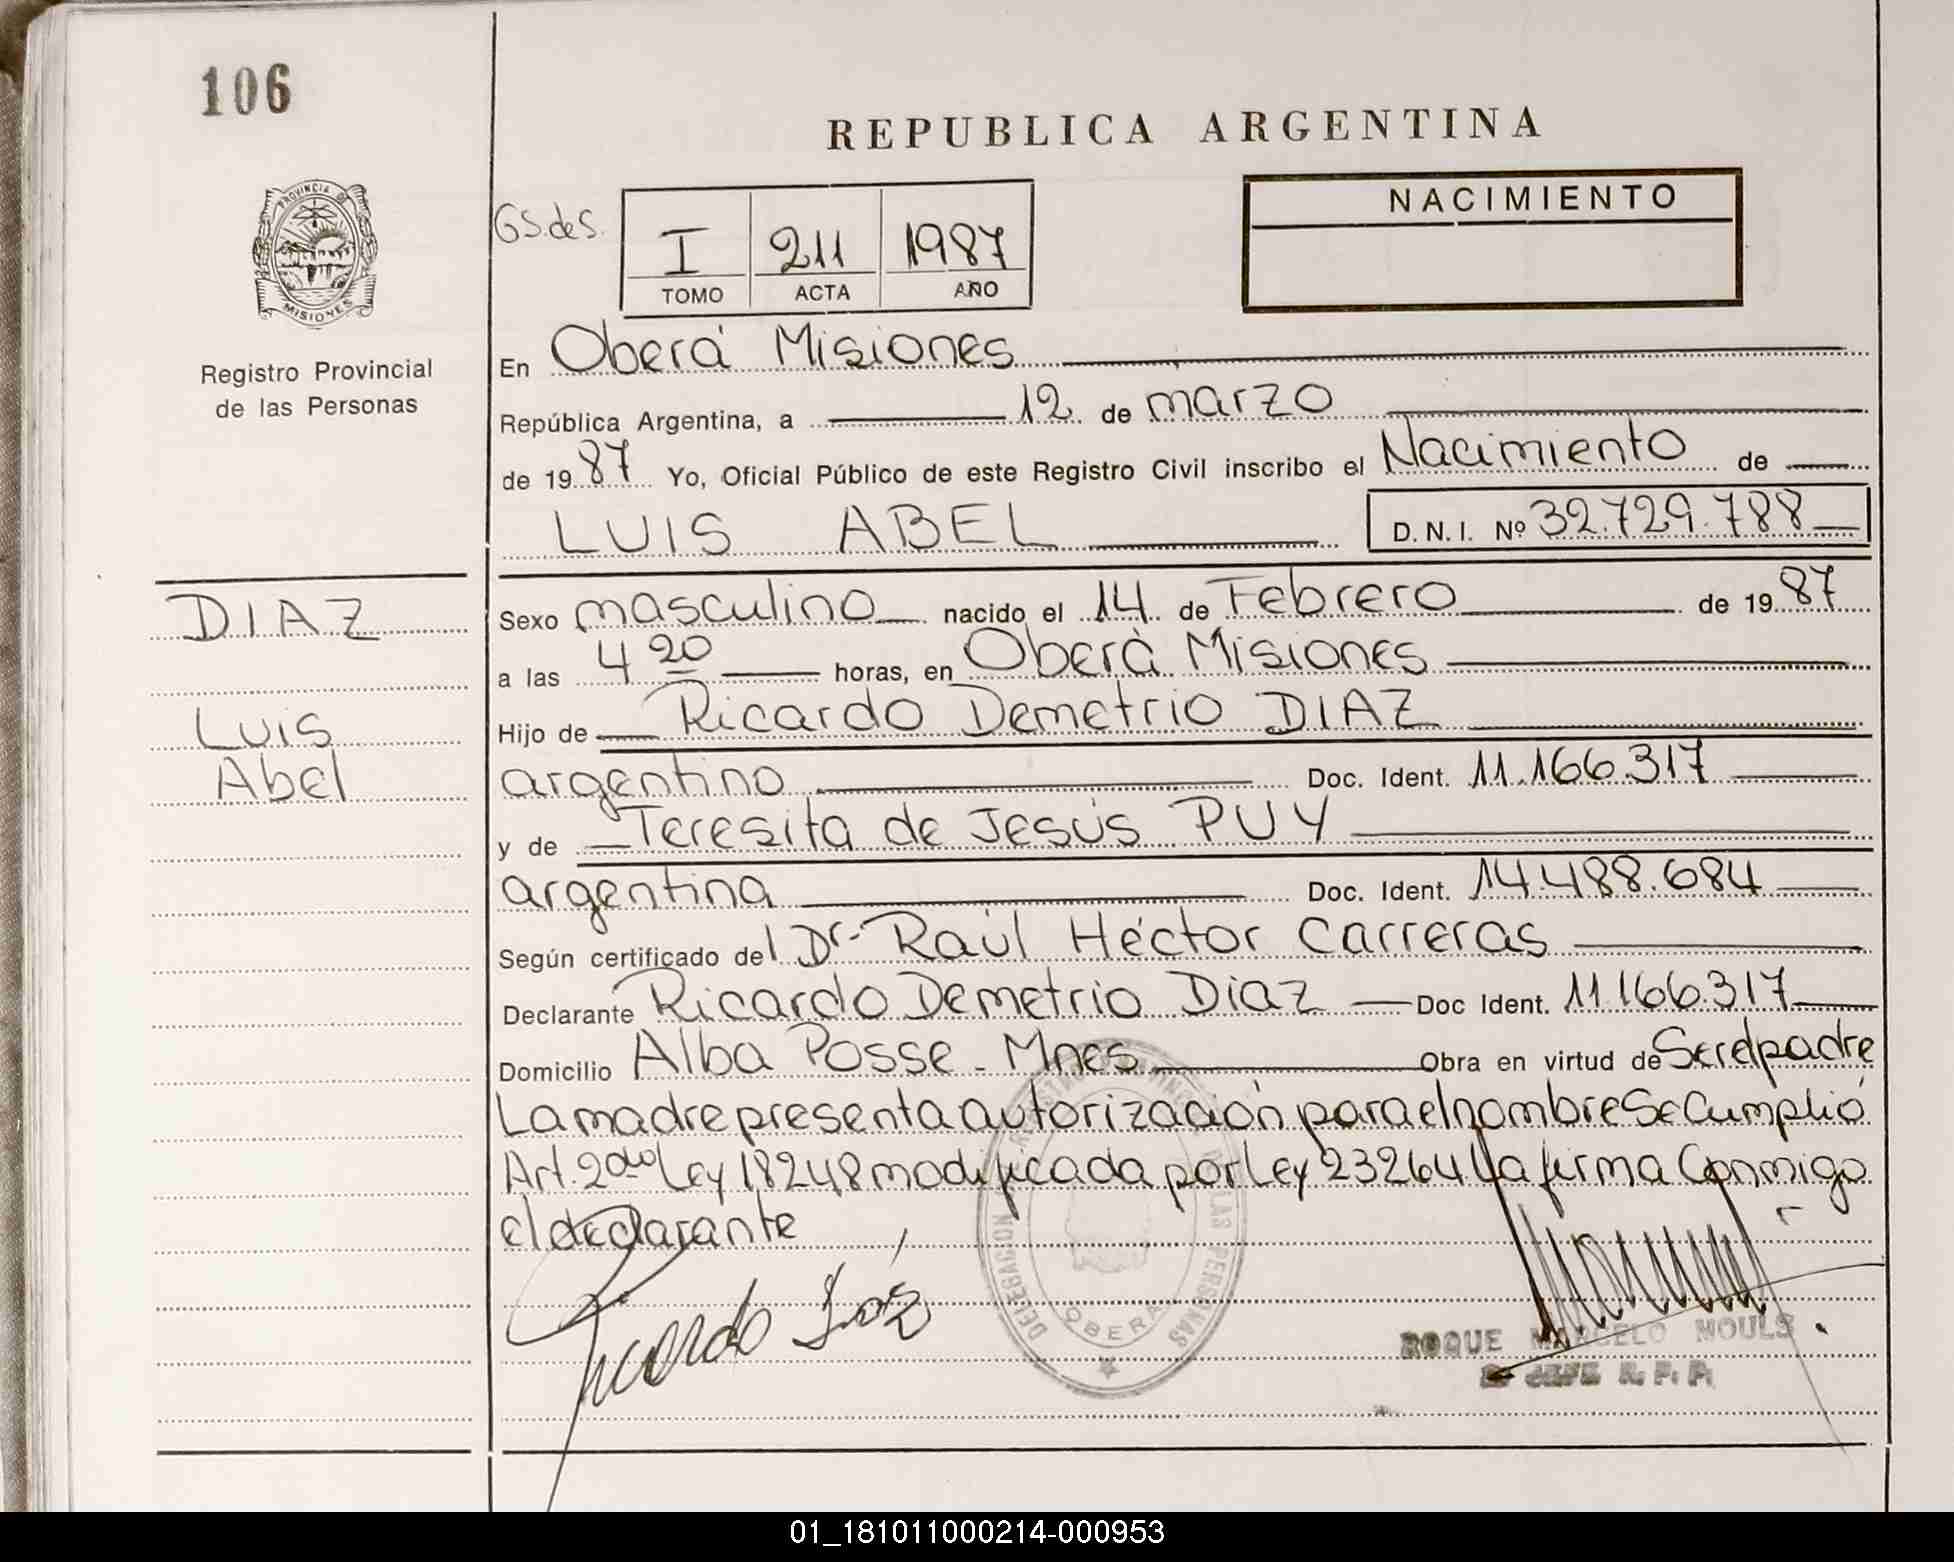 106
REPUBLICA ARGENTINA
PROVINCIA DE
MISIONES
Registro Provincial
de las Personas
GS.deS.
I 211 1987
TOMO ACTA AÑO
NACIMIENTO
En Oberá Misiones
República Argentina, a 12 de marzo
de 1987 Yo, Oficial Público de este Registro Civil inscribo el Nacimiento de
LUIS ABEL D. N. I. Nº 32.729.788
DIAZ
Luis
Abel
Sexo masculino nacido el 14 de Febrero de 1987
a las 4 20 horas, en Oberá Misiones
Hijo de Ricardo Demetrio DIAZ
argentino Doc. Ident. 11.166.317
y de Teresita de Jesús PUY
argentina Doc. Ident. 14.488.684
Según certificado del Dr. Raúl Héctor Carreras
Declarante Ricardo Demetrio Diaz Doc Ident. 11.166.317
Domicilio Alba Posse - Mnes. Obra en virtud de Ser el padre
La madre presenta autorización para el nombre Se Cumplió
Art. 2do Ley 18248 modificada por Ley 23264 La firma Conmigo
el declarante
Ricardo Díaz
DELEGACION REGISTRO PROVINCIAL DE LAS PERSONAS
OBERA
ROQUE MARCELO MOULS
JEFE R. P. P.
01_181011000214-000953